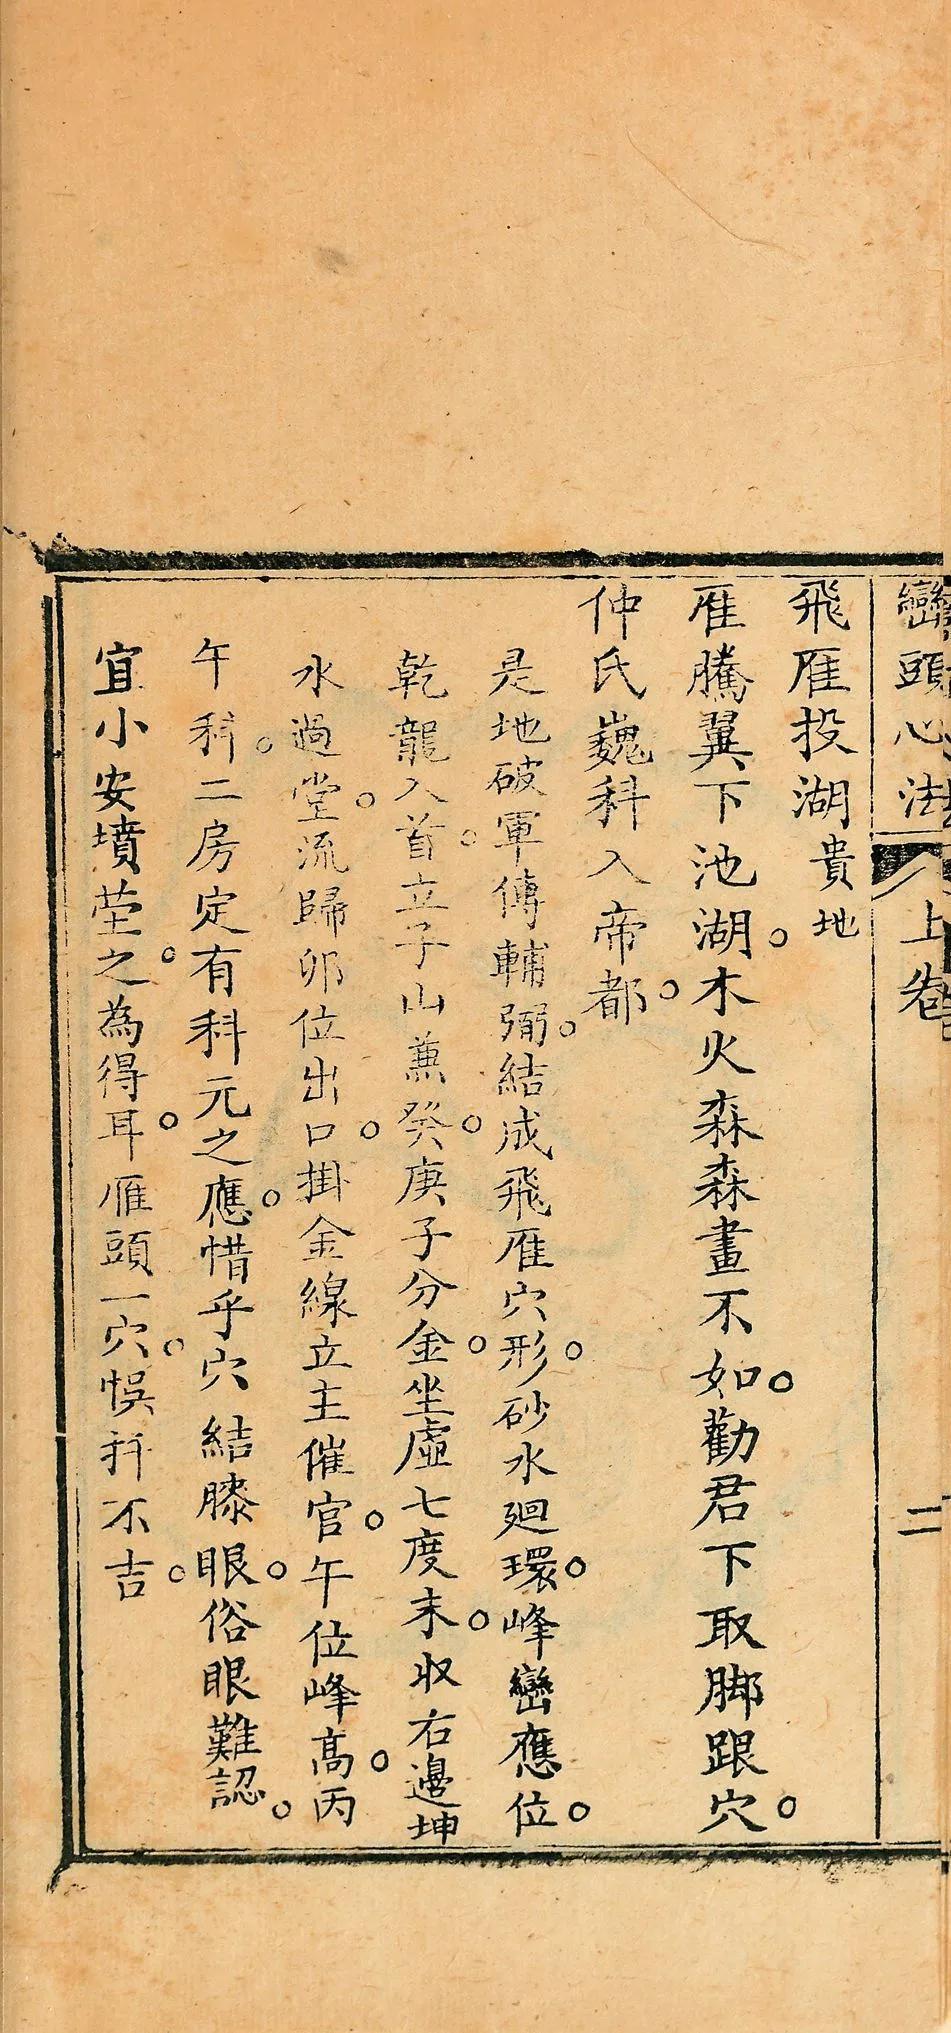 巒頭心法 上卷 二
飛雁投湖貴地
雁騰翼下池湖。木火森森畫不如。勸君下取脚跟穴。
仲氏巍科入帝都。
是地破軍傳輔弼。結成飛雁穴形。砂水廻環。峰巒應位。
乾龍入首。立子山兼癸。庚子分金。坐虛七度末。收右邊坤
水過堂。流歸卯位出口。掛金線立主催官。午位峰高。丙
午科。二房定有科元之應。惜乎穴結膝眼。俗眼難認。
宜小安墳塋之。為得耳。雁頭一穴。悞扦不吉。